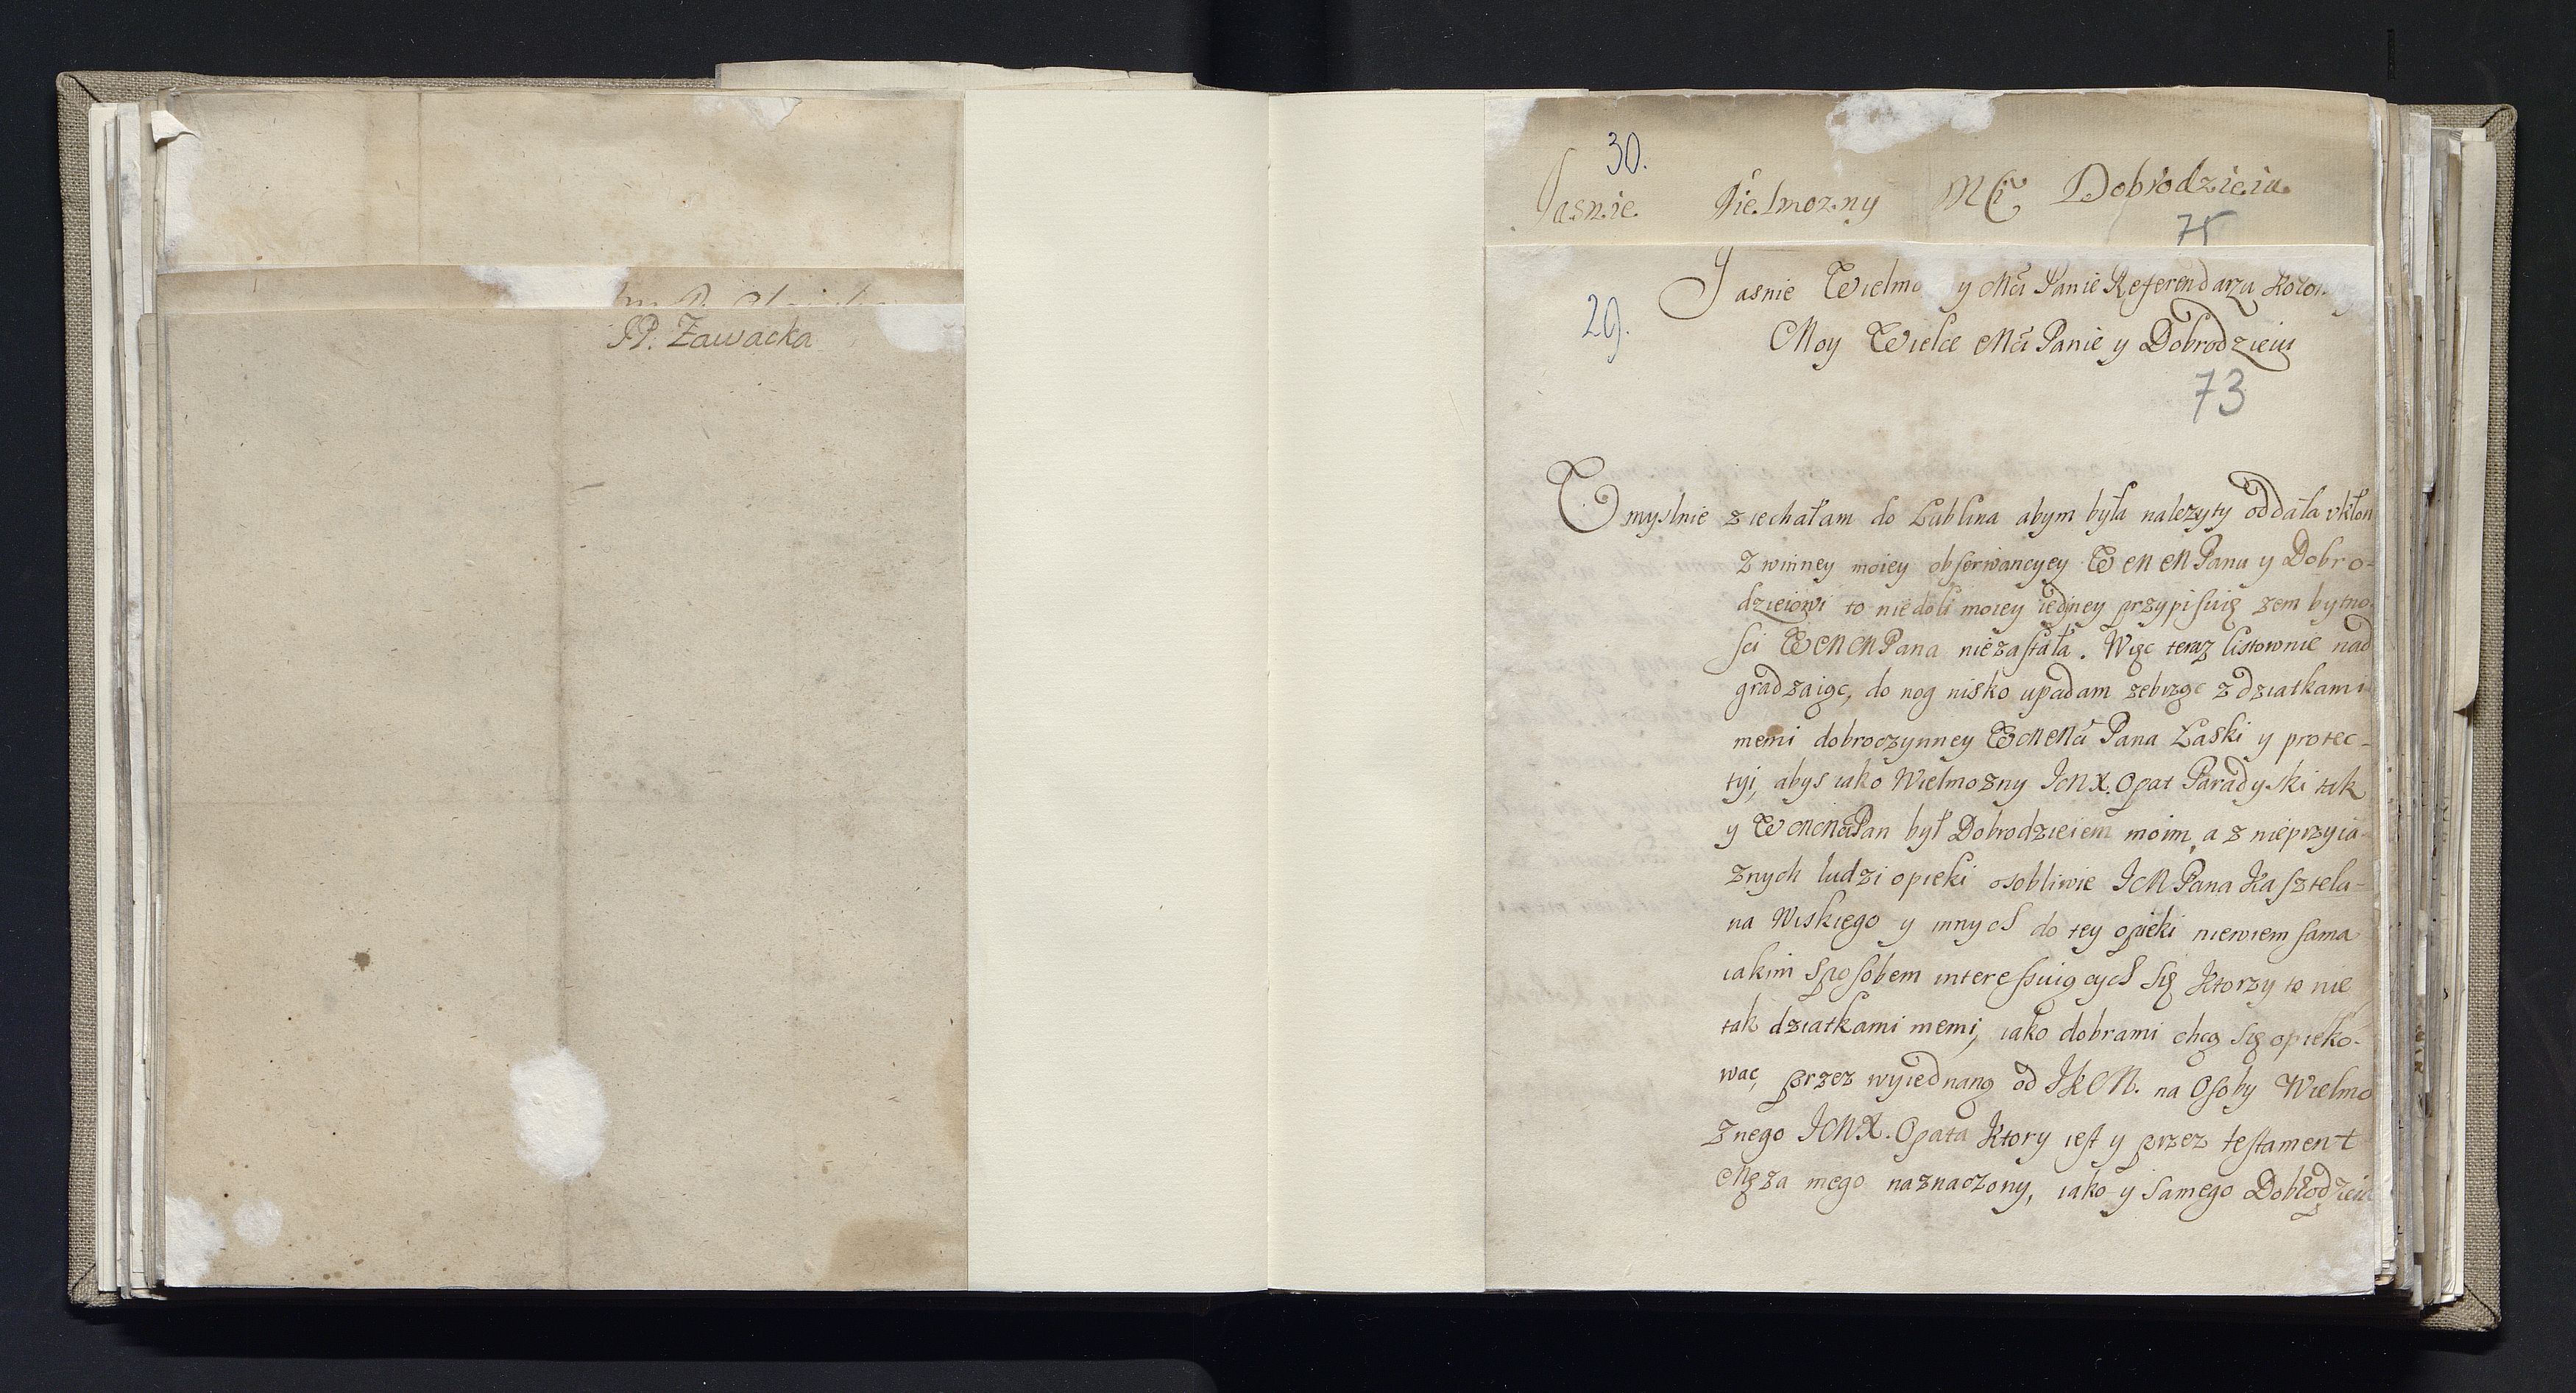 JP. Zawacka
30.
Jasnie Wielmozny Mći Dobrodzieiu
75
Jasnie Wielmo y Mći Panie Referendarzu
29.
Moy Wielce Mći Panie y Dobrodzieiu
73
Vmyslnie ziechałam do Lublina abym była nalezyty oddała vkłon
z winney moiey obserwancyey WMMPanu y Dobro-
dzieiowi to niedoli moiey iedney przypisuię zem bytno-
sci WMMPana niezastała. Więc teraz listownie nad
gradzaiąc, do nog nisko upadam zebrząc z dziatkami
memi dobroczynney WMMći Pana Łaski y protec-
tyi, abys iako Wielmozny JMX. Opat Paradyski tak
y WMMćiPan był Dobrodzieiem moim, a z nieprzyia-
znych ludzi opieki osobliwie JM Pana Kasztela-
na Wiskiego y innych do tey opieki niewiem sama
iakim sposobem interessuiących się ktorzy to nie
tak dziatkami memi, iako dobrami chcą się opieko-
wac, przez wyiednaną od JKM. na Osoby Wielmo
znego JMX. Opata ktory iest y przez testament
Męza mego naznaczony, iako y samego Dobrodzieia